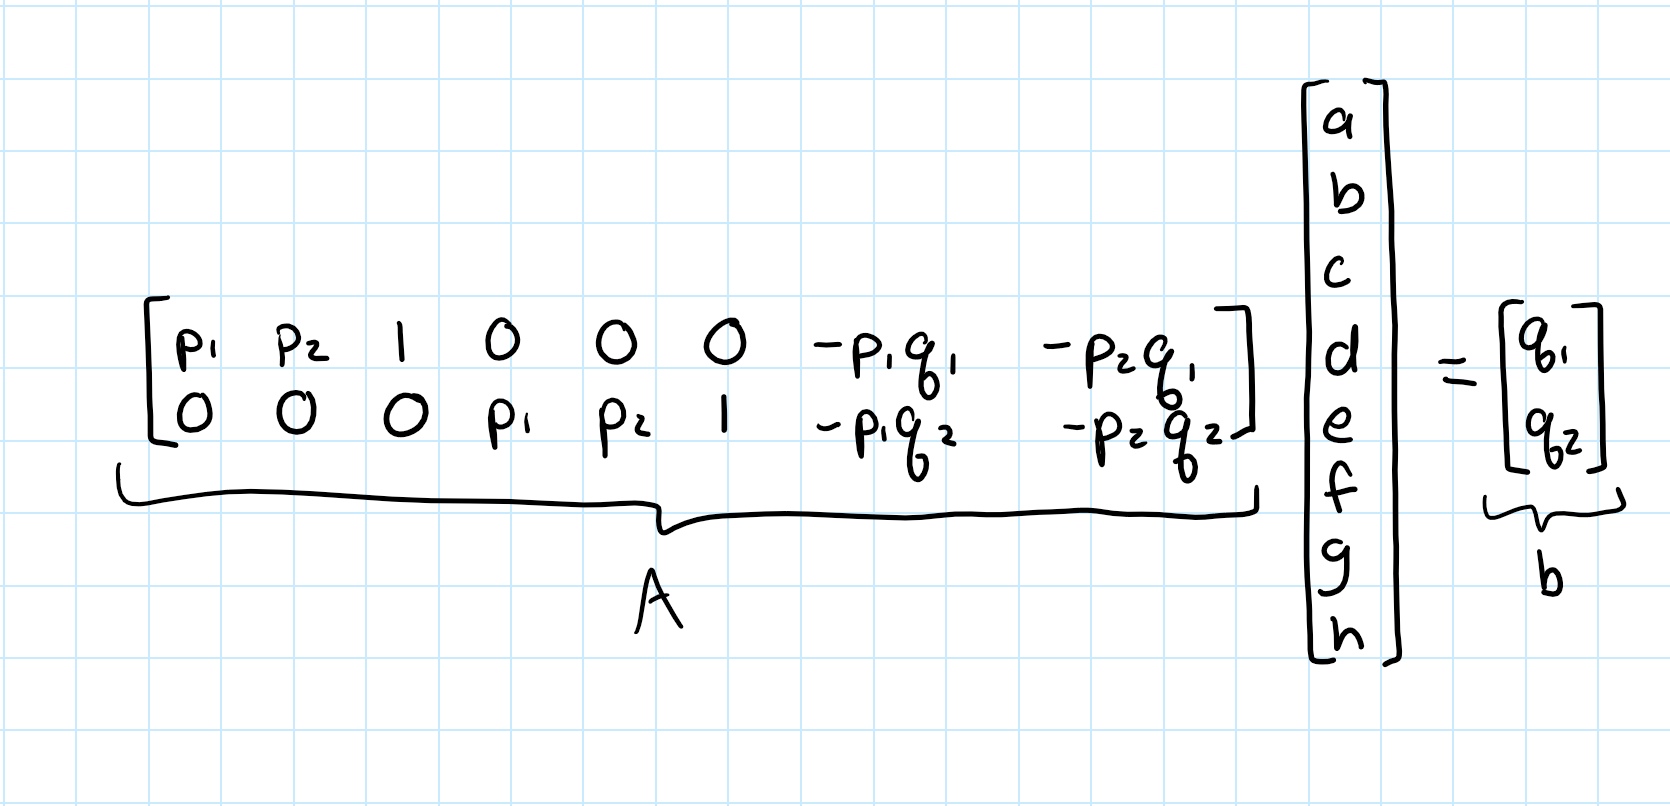 [p₁ p₂ 1 0 0 0 -p₁q₁ -p₂q₁]
[0 0 0 p₁ p₂ 1 -p₁q₂ -p₂q₂]
A
[a
b
c
d
e
f
g
h]
=
[q₁
q₂]
b